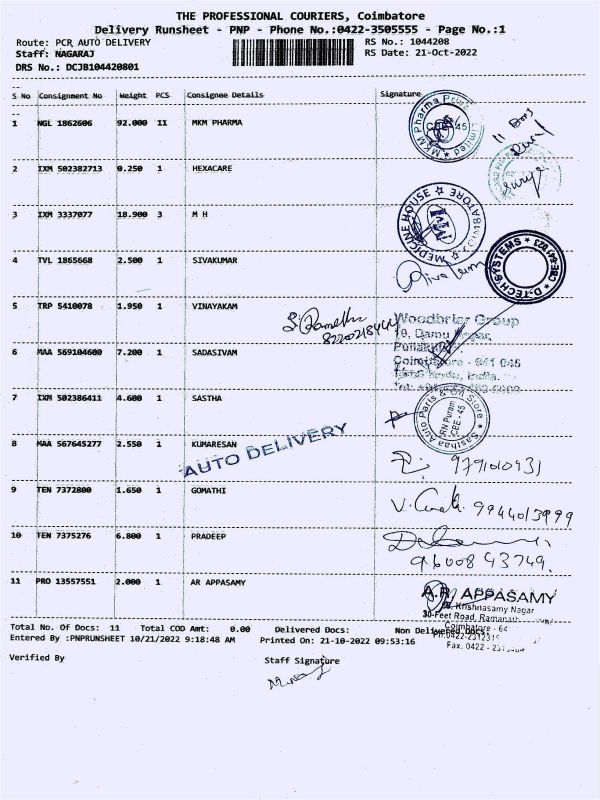 THE PROFESSIONAL COURIERS, Coimbatore
Delivery Runsheet - PNP - Phone No.:0422-3505555 - Page No.:1
Route: PCR AUTO DELIVERY RS No.: 1044208
Staff: NAGARAJ RS Date: 21-Oct-2022
DRS No.: DCJB104420801
S No Consignment No Weight PCS Consignee Details Signature
1 NGL 1862606 92.000 11 MKM PHARMA
MKM Pharma Limited
11 Box
2 IXM 502382713 0.250 1 HEXACARE
Surya
3 IXM 3337077 18.900 3 M H
MEDICINE HOUSE COIMBATORE
4 TVL 1865668 2.500 1 SIVAKUMAR
D-TECH SYSTEMS CBE-641 023
5 TRP 5410078 1.950 1 VINAYAKAM
Woodbrier Group
19, Damu Nagar,
Coimbatore - 641 045
Tamil Nadu, India.
6 MAA 569104600 7.200 1 SADASIVAM
7 IXM 502386411 4.600 1 SASTHA
Sasthaa Auto Parts & Oil Store
RN Puram
CBE - 45
8 MAA 567645277 2.550 1 KUMARESAN
AUTO DELIVERY
9791010931
9 TEN 7372800 1.650 1 GOMATHI
9944013999
10 TEN 7375276 6.800 1 PRADEEP
9600843749.
11 PRO 13557551 2.000 1 AR APPASAMY
A.R. APPASAMY
Krishnasamy Nagar
30-Feet Road,
Total No. Of Docs: 11 Total COD Amt: 0.00 Delivered Docs: Non Delivered Docs:
Coimbatore - 64
Entered By :PNPRUNSHEET 10/21/2022 9:18:48 AM Printed On: 21-10-2022 09:53:16
Fax. 0422 -
Verified By Staff Signature